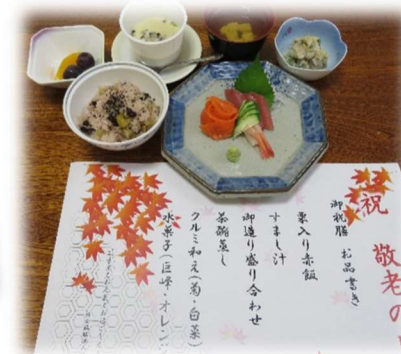 祝 敬老の
御祝膳 お品書き
栗入り赤飯
すまし汁
御造り盛り合わせ
茶碗蒸し
クルミ和え(菊・白菜)
水菓子(巨峰・オレンジ